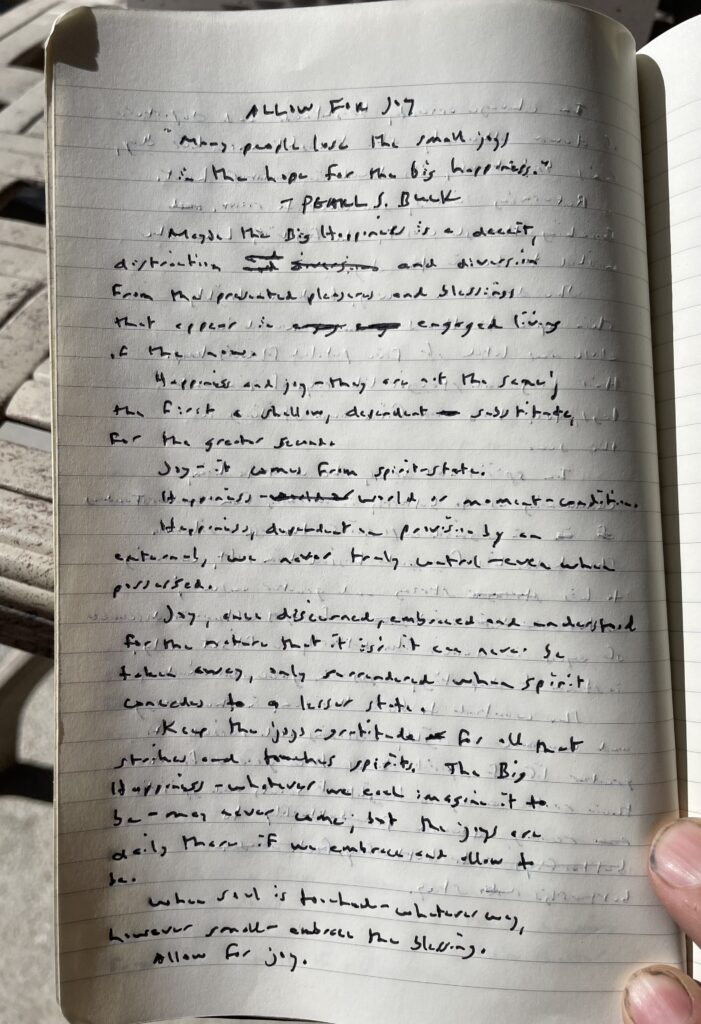 ALLOW FOR JOY
"Many people lose the small joys
in the hope for the big happiness."
- PEARL S. BUCK
Maybe the Big Happiness is a deceit,
distraction and diversion
from the presented pleasures and blessings
that appear in engaged living
of the now.
Happiness and joy - they are not the same;
the first a shallow, dependent substitute,
for the greater second.
Joy - it comes from spirit-state.
Happiness - world or moment-condition.
Happiness, dependent on provision by an
external, we never truly control - even when
possessed.
Joy, once discerned, embraced and understood
for the nature that it is: it can never be
taken away, only surrendered when spirit
concedes to a lesser state.
Keep the joys - gratitude for all that
strikes and touches spirits. The Big
Happiness - whatever we each imagine it to
be - may never come, but the joys are
daily there if we embrace and allow to
be.
When soul is touched - whatever way,
however small - embrace the blessing.
Allow for joy.